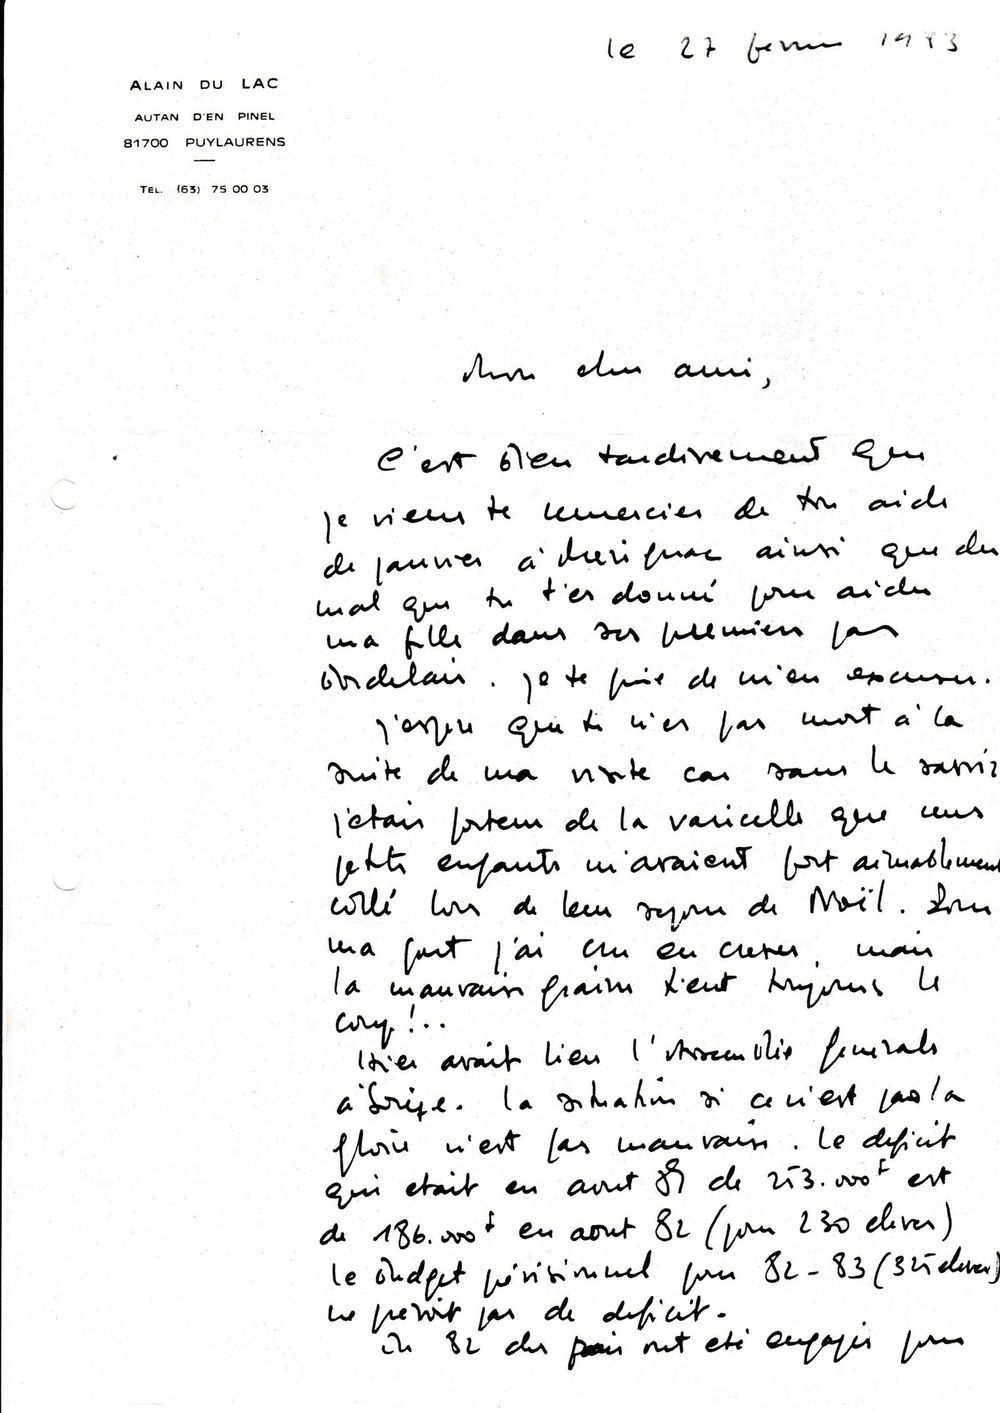 le 27 fevrier 1983
ALAIN DU LAC
AUTAN D'EN PINEL
81700 PUYLAURENS
TEL. (63) 75 00 03
Mon cher ami,
C'est bien tardivement que
je viens te remercier de ton aide
de janvier à Merignac ainsi que du
mal que tu t'es donné pour aider
ma fille dans ses premiers pas
bordelais. je te prie de m'en excuser.
j'espere que tu n'es pas mort à la
suite de ma visite car sans le savoir
j'etais porteur de la varicelle que mes
petits enfants m'avaient fort aimablement
collé lors de leur sejour de Noël. Pour
ma part j'ai cru en crever, mais
la mauvaise graine tient toujours le
coup!..
Hier avait lieu l'Assemblée generale
à Sorèze. la situation si ce n'est pas la
gloire n'est pas mauvaise. le deficit
qui etait en aout 81 de 253.000F est
de 186.000F en aout 82 (pour 230 eleves)
le budget prévisionnel pour 82-83 (325 eleves)
ne prevoit pas de deficit.
En 82 des frais ont eté engagés pour